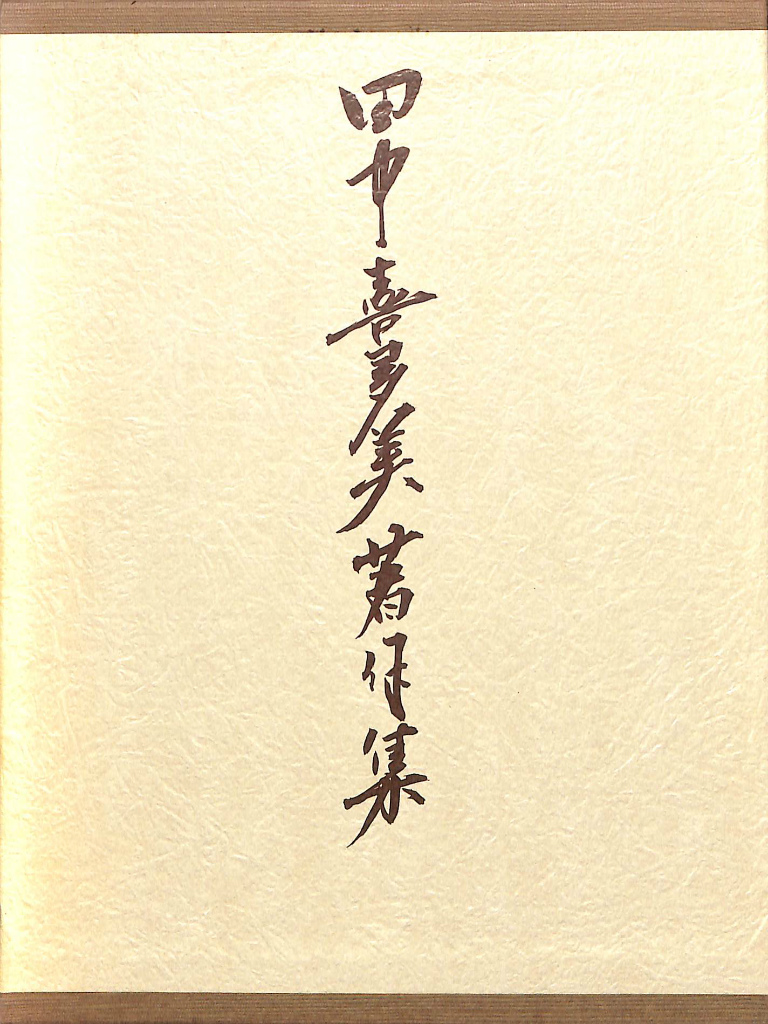 田中喜多美著作集